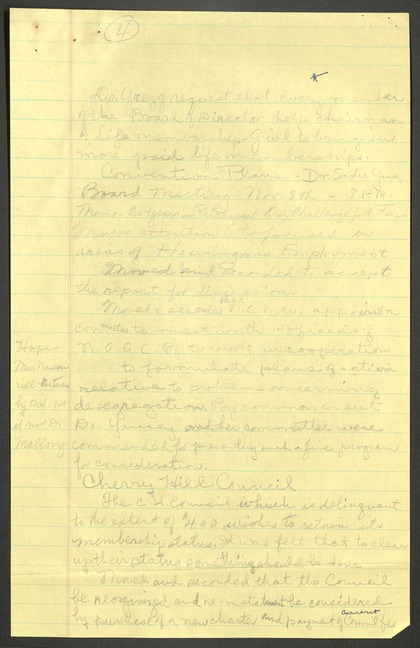 4
Dr. Gregg request that every member
of the Board of Director help chairman
of Life memberships Gill to bring in
more paid life memberships.
Convention Plans - Dr. Sadie Yancey
Board Meeting - Nov. 8th - 8 P.M.
Theme - Our Challenge
Major attention to be focused in
areas of Housing and Employment
Moved and seconded to accept
the report for discussion.
Moved & seconded that N.C.N.W. appoint a
committee to meet with officials of
N.A.A.C.P. to work in cooperation
to formulate plans of action
relative to problems concerning
desegregation. By common consent
Dr. Yancey and her committee were
commended for presenting such a fine program
for consideration.
Hope
Mrs. Mason
will
by Oct. 1st
if not Dr.
Mallory
Cherry Hill Council
The C.H. Council which is delinquent
to the extent of $400 wishes to retain its
membership status. It was felt that to clear
up their status something should be done.
Moved and seconded that the Council
be reorganized and re-instatement be considered
by purchase of a new charter and payment of current